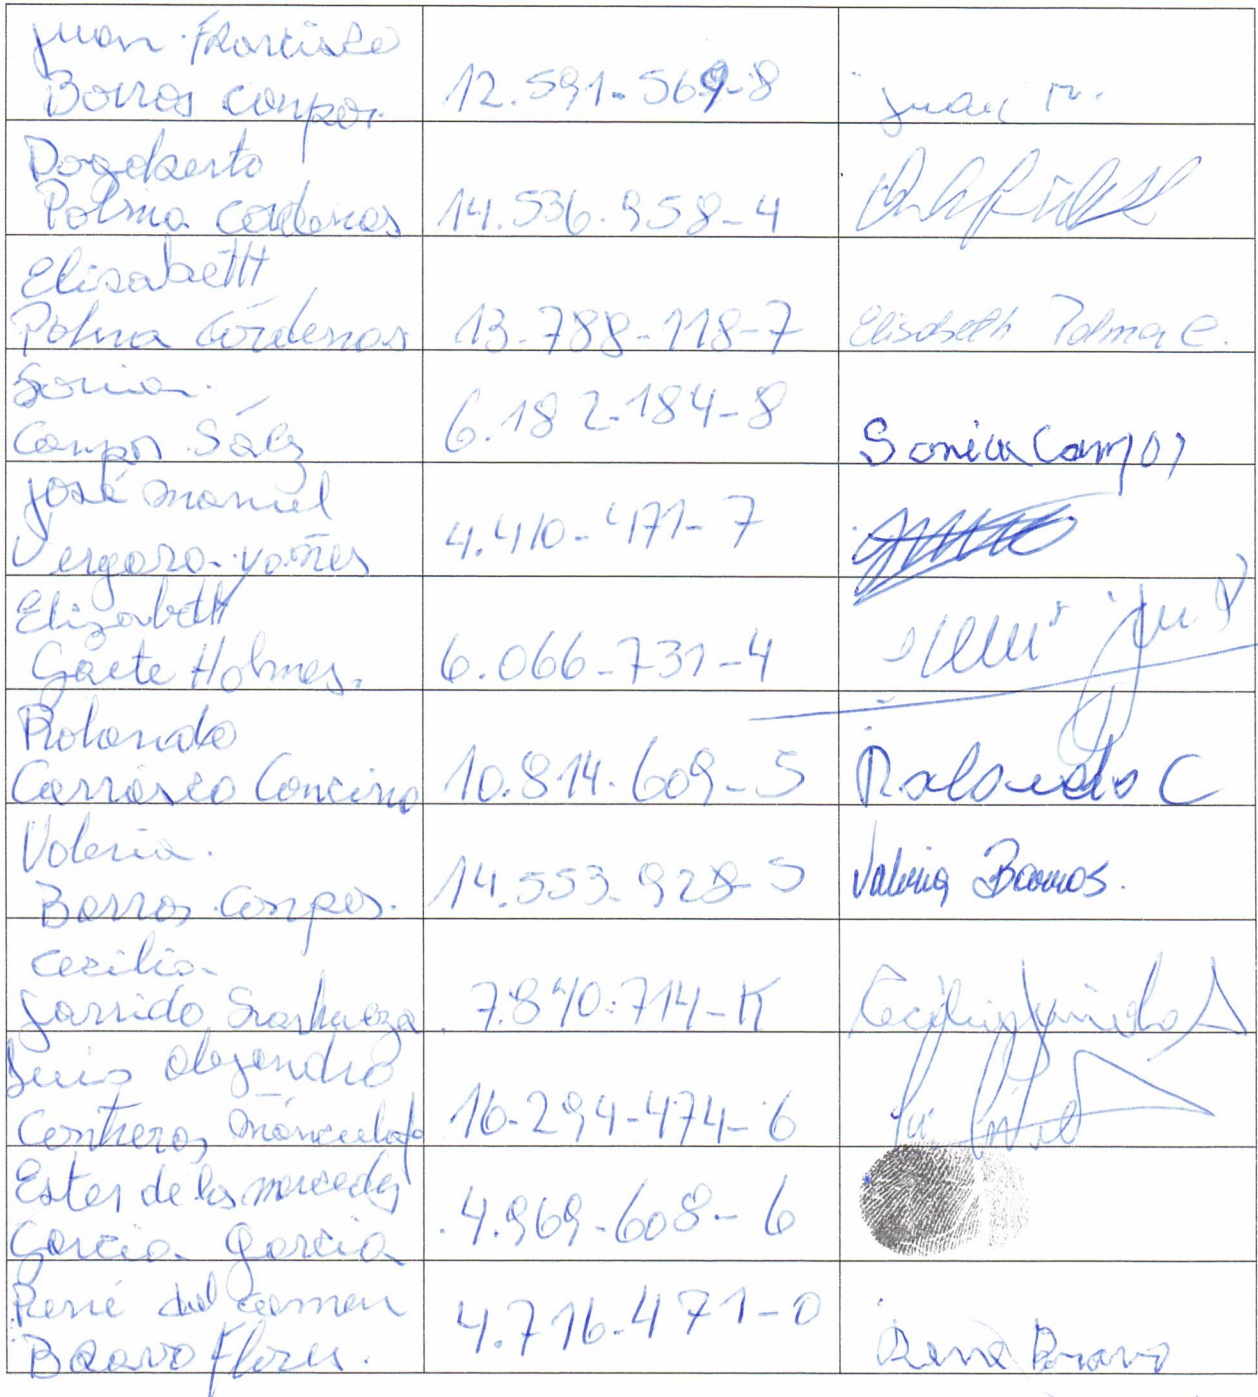 Juan Francisco
Borros Campos. 12.591-569-8 Juan Fr.
Dogoberto
Palma Cárdenas 14.536.958-4
Elisabett
Palma Cárdenas 13.788-118-7 Elisabeth Palma C.
Sonia.
Campos Sáez 6.182-184-8 Sonia Campos
José Manuel
Vergara Yañes 4.410-471-7
Elizabett
Gaete Holmes. 6.066-731-4
Rolando
Carrasco Concino 10.814.609-5 Rolando C
Valeria.
Barros Campos. 14.553.928-5 Valeria Barros.
Cecilia
Garrido 7.840.714-K Cecilia Garrido
Luis Alejandro
Contreras 16-294-474-6
Ester de las mercedes
Garcia Garcia 4.969-608-6
René del Carmen
Bravo Flores. 4.716-471-0 René Bravo